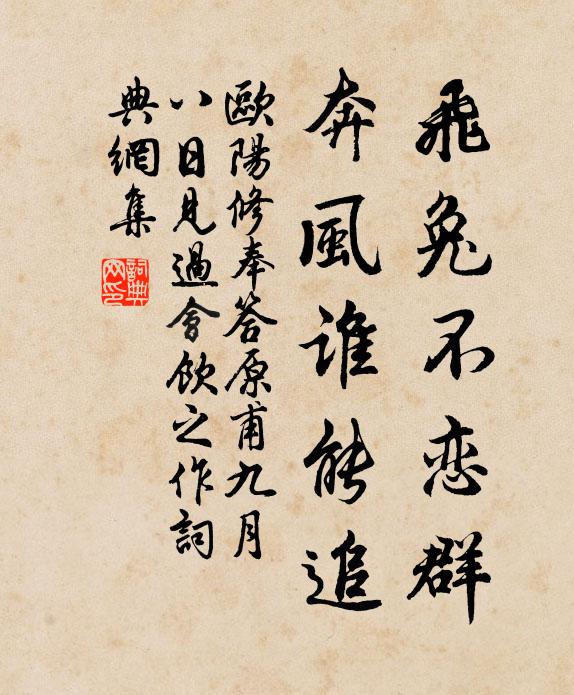 飛兔不恋群
奔風誰能追
歐陽修奉答原甫九月
八日見過會飲之作詞
典網集
詞典
网印